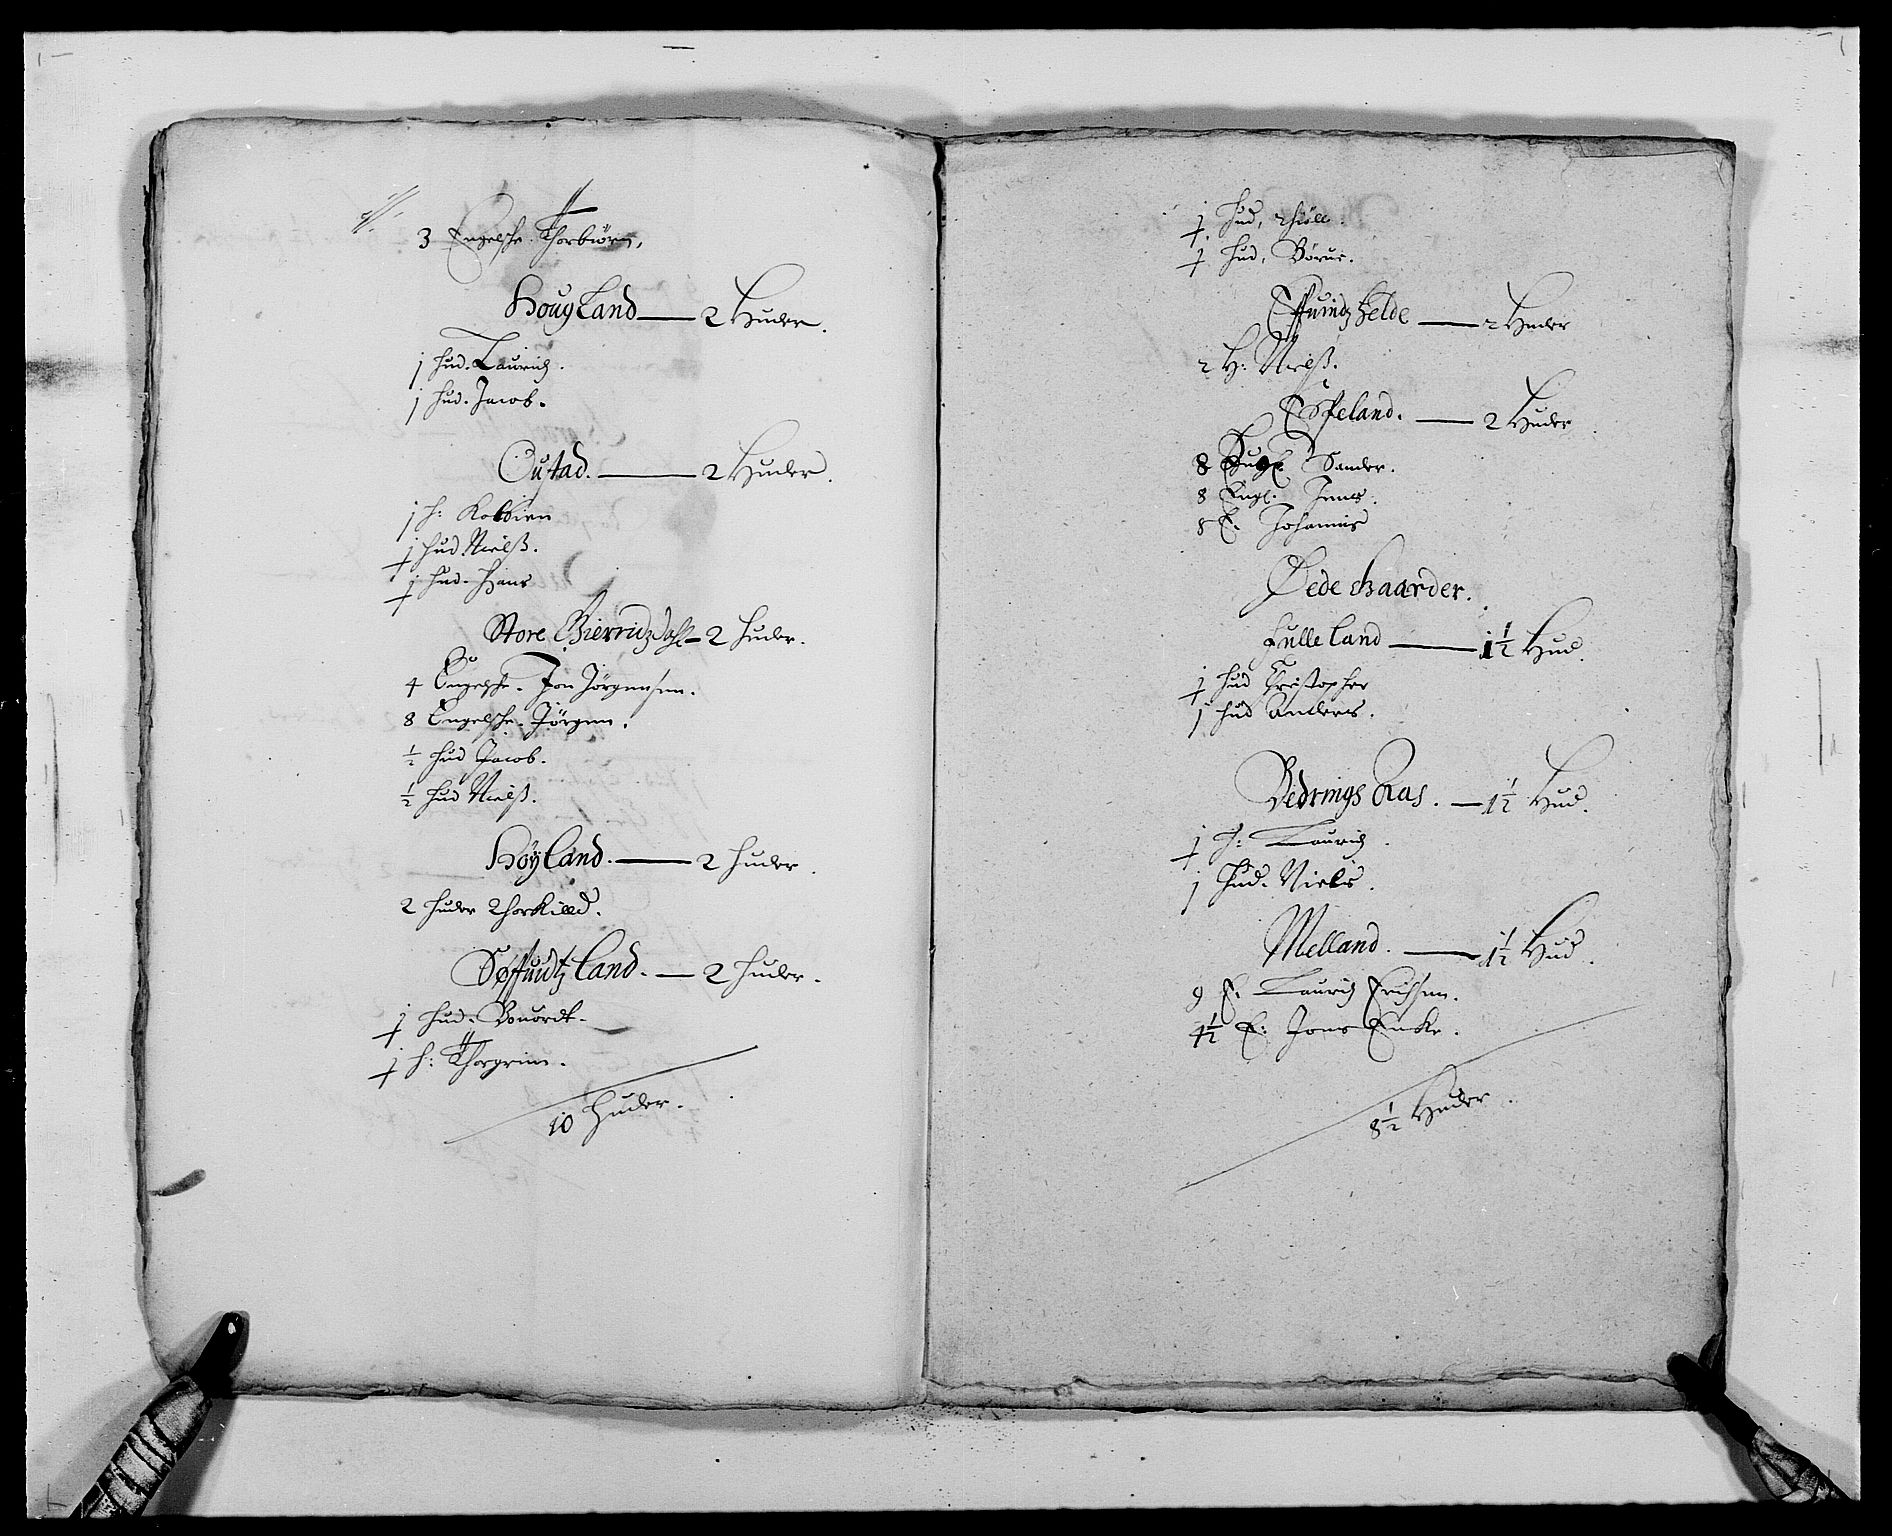 3 Engelsche Thorbiørn,
Hougland — 2 Huder.
1 hud. Lauridz.
1 hud. Jacob.
Oustad. — 2 Huder.
1 h: Kolbiørn
½ hud Nielß.
½ hud. Hans
Store Bierridzdahl — 2 huder.
4 Engelsche. Jon Jörgensen.
8 Engelsche. Jörgen.
½ hud Jacob.
½ hud Nielß.
Höyland. — 2 huder.
2 huder Thorkilld.
Søffuidtz land. — 2 huder.
1 hud.
1 h: Thorgrim.
10 huder.
1 hud,
1 hud, Börue.
Effuindz helde — 2 Huder
2 H: Nielß.
Espeland. — 2 Huder
8 Engl. Sander.
8 Engl. Jens.
8 E. Johannis
Øede Gaarder.
fulleland — 1½ Hud.
½ hud Christopher
1 hud Anders.
Bedrings Aas. — 1½ Hud.
½ h: Lauridz.
1 hud. Niels.
Melland. — 1½ Hud.
9 E. Lauridz Erichsen.
4½ E: Jons Encke.
8½ Huder.